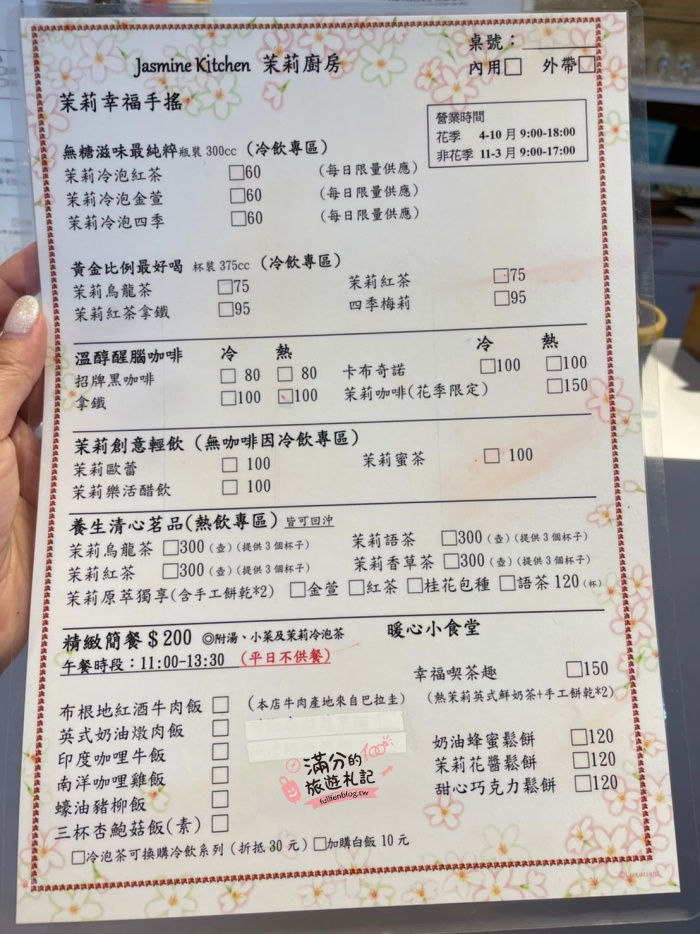 桌號：
Jasmine Kitchen 茉莉廚房
內用□ 外帶□
茉莉幸福手搖
營業時間
花季 4-10 月 9:00-18:00
非花季 11-3 月 9:00-17:00
無糖滋味最純粹 瓶裝 300cc (冷飲專區)
茉莉冷泡紅茶 □60 (每日限量供應)
茉莉冷泡金萱 □60 (每日限量供應)
茉莉冷泡四季 □60 (每日限量供應)
黃金比例最好喝 杯裝 375cc (冷飲專區)
茉莉烏龍茶 □75 茉莉紅茶 □75
茉莉紅茶拿鐵 □95 四季梅莉 □95
溫醇醒腦咖啡 冷 熱 冷 熱
招牌黑咖啡 □ 80 □ 80 卡布奇諾 □100 □100
拿鐵 □100 □100 茉莉咖啡(花季限定) □150
茉莉創意輕飲 (無咖啡因冷飲專區)
茉莉歐蕾 □ 100 茉莉蜜茶 □ 100
茉莉樂活醋飲 □ 100
養生清心茗品(熱飲專區) 皆可回沖
茉莉烏龍茶 □300 (壺) (提供 3 個杯子) 茉莉語茶 □300 (壺) (提供 3 個杯子)
茉莉紅茶 □300 (壺) (提供 3 個杯子) 茉莉香草茶 □300 (壺) (提供 3 個杯子)
茉莉原萃獨享(含手工餅乾*2) □金萱 □紅茶 □桂花包種 □語茶 120 (杯)
精緻簡餐＄200 ◎附湯、小菜及茉莉冷泡茶
午餐時段：11:00-13:30 (平日不供餐)
布根地紅酒牛肉飯 □ (本店牛肉產地來自巴拉圭)
英式奶油燉肉飯 □
印度咖哩牛飯 □
南洋咖哩雞飯 □
蠔油豬柳飯 □
三杯杏鮑菇飯(素) □
□冷泡茶可換購冷飲系列 (折抵 30 元) □加購白飯 10 元
暖心小食堂
幸福喫茶趣 □150
(熱茉莉英式鮮奶茶+手工餅乾*2)
奶油蜂蜜鬆餅 □120
茉莉花醬鬆餅 □120
甜心巧克力鬆餅 □120
滿分的
100
旅遊札記
fullfenblog.tw